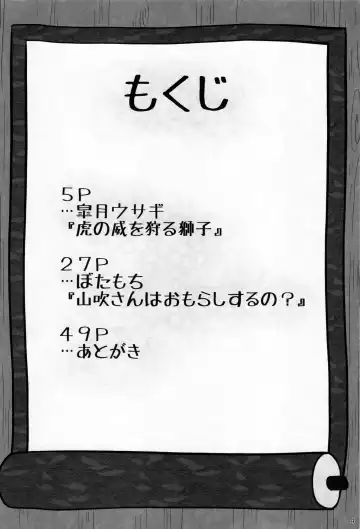 もくじ
5P
…皐月ウサギ
『虎の威を狩る獅子』
27P
…ぼたもち
『山吹さんはおもらしするの？』
49P
…あとがき